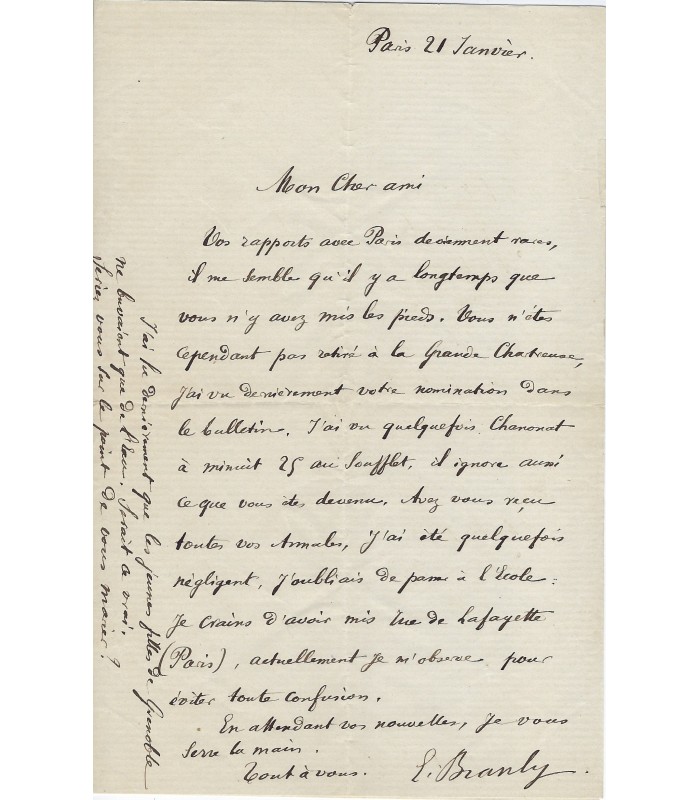 Paris 21 Janvier.
Mon Cher ami
Vos rapports avec Paris deviennent rares,
il me semble qu'il y a longtemps que
vous n'y avez mis les pieds. Vous n'êtes
cependant pas retiré à la Grande Chartreuse,
J'ai vu dernièrement votre nomination dans
le bulletin. J'ai vu quelquefois Chanonat
à minuit 25 au Soufflet, il ignore aussi
ce que vous êtes devenu. Avez vous reçu
toutes vos Annales, J'ai été quelquefois
négligent, J'oubliais de passer à l'Ecole :
Je crains d'avoir mis rue de Lafayette
(Paris), actuellement Je m'observe pour
éviter toute confusion.
En attendant vos nouvelles, Je vous
serre la main.
Tout à vous. E. Branly
J'ai lu dernièrement que les jeunes filles de Grenoble
ne buvaient que de l'eau. Serait ce vrai.
Seriez vous sur le point de vous marier ?